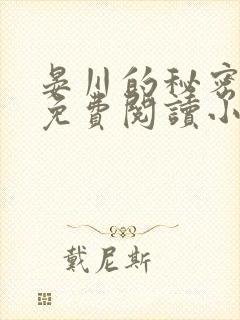 晏川的秘密
免費閱讀小
戴尼斯